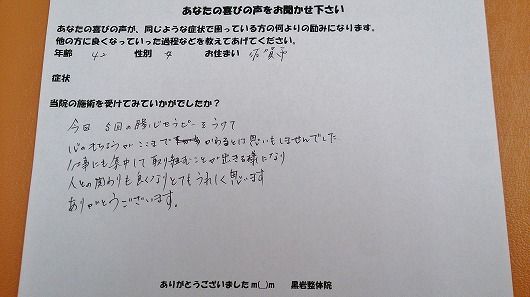 あなたの喜びの声をお聞かせ下さい
あなたの喜びの声が、同じような症状で困っている方の何よりの励みになります。
他の方に良くなっていった過程などを教えてあげてください。
年齢 42 性別 女 お住まい 佐賀市
症状
当院の施術を受けてみていかがでしたか？
今日 5回の腸心セラピーをうけて
心のもちようがここまでかわるとは思いもしませんでした
仕事にも集中して取り組むことが出来る様になり
人との関わりも良くなりとてもうれしく思います
ありがとうございます。
ありがとうございました m(__)m 黒岩整体院